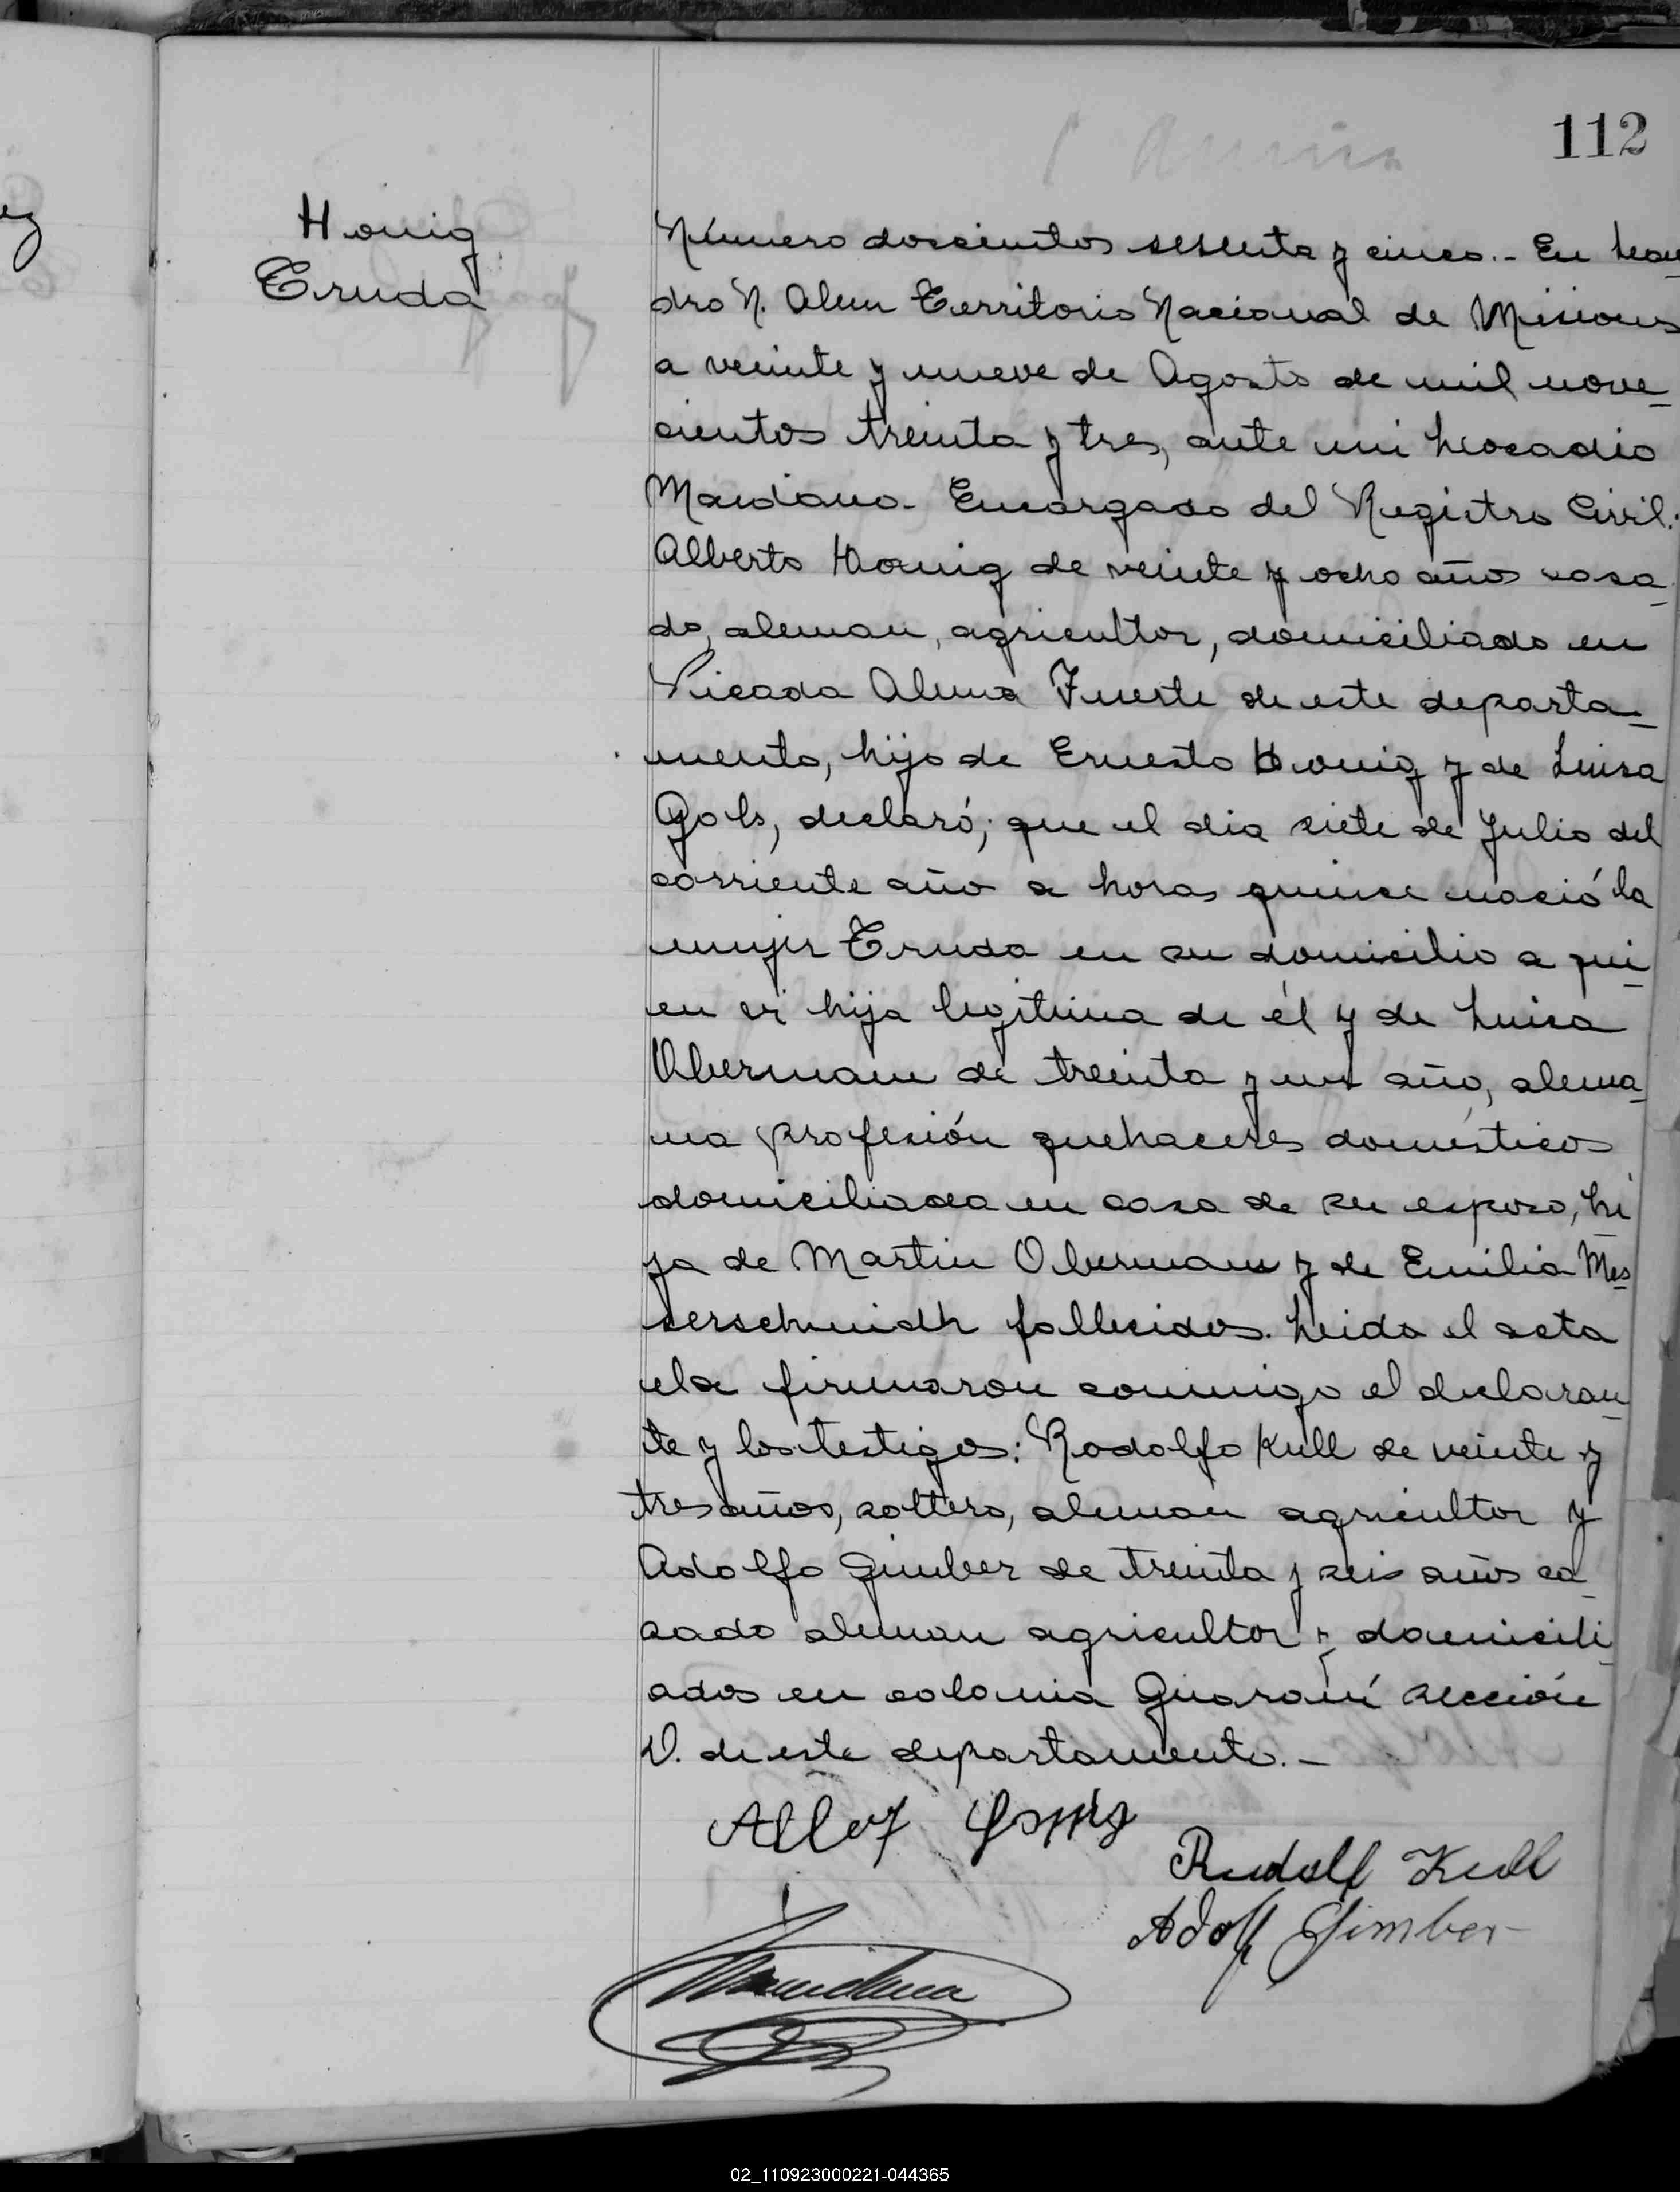 112
Honig
Truda
Número doscientos sesenta y cinco.- En Lean_
dro N. Alem Territorio Nacional de Misiones
a veinte y nueve de Agosto de mil nove_
cientos treinta y tres, ante mi Leocadio
Mardiano- Encargado del Registro Civil:
Alberto Honig de veinte y ocho años casa_
do, aleman, agricultor, domiciliado en
Picada Alma Fuerte de este departa_
mento, hijo de Ernesto Honig y de Luisa
declaró; que el dia siete de Julio del
corriente año a horas quince nació la
mujer Truda en su domicilio a qui_
en vi hija legitima de él y de Luisa
Obermann de treinta y un año, alema_
na profesión quehaceres domésticos
domiciliada en casa de su esposo, hi_
ja de Martin Obermann y de Emilia Mes_
serschmidh fallecidos. Leida el acta
la firmaron conmigo el declaran_
te y los testigos: Rodolfo Kull de veinte y
tres años, soltero, aleman agricultor y
Adolfo Gimber de treinta y seis años ca_
sado aleman agricultor y domicili_
ados en colonia Guaraní sección
V. de este departamento.-
Rudolf Kull
Adolf Gimber
02_110923000221-044365